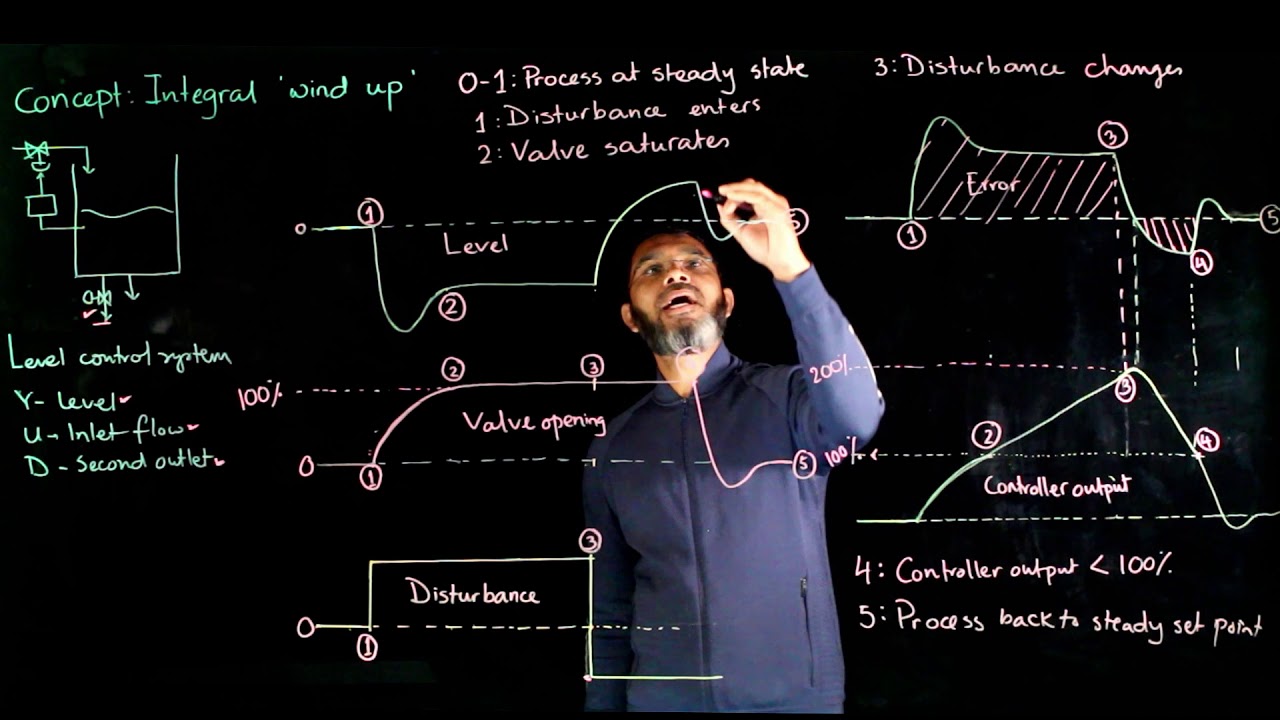 Concept: Integral 'wind up'
0-1: Process at steady state
1: Disturbance enters
2: Valve saturates
3: Disturbance changes
Level control system
Y- Level
U- Inlet flow
D - Second outlet
0
1
Level
2
5
100%
2
3
Valve opening
0
1
5
3
Disturbance
0
1
3
Error
1
4
5
200%
3
2
100%
4
Controller output
4: Controller output < 100%
5: Process back to steady set point